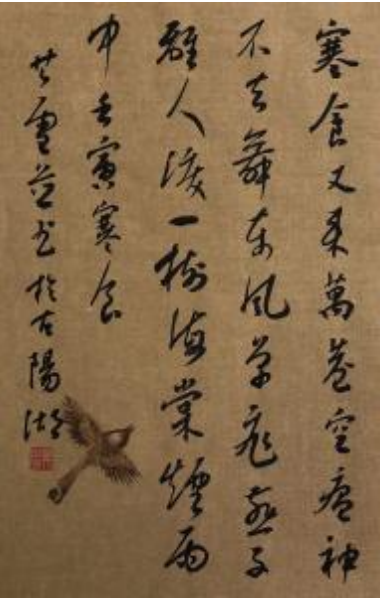 寒食又来萬巷空瘟神
不去舞东风草飛燕子
離人淚一樹海棠煙雨
中壬寅寒食
雪並书於古陽湖